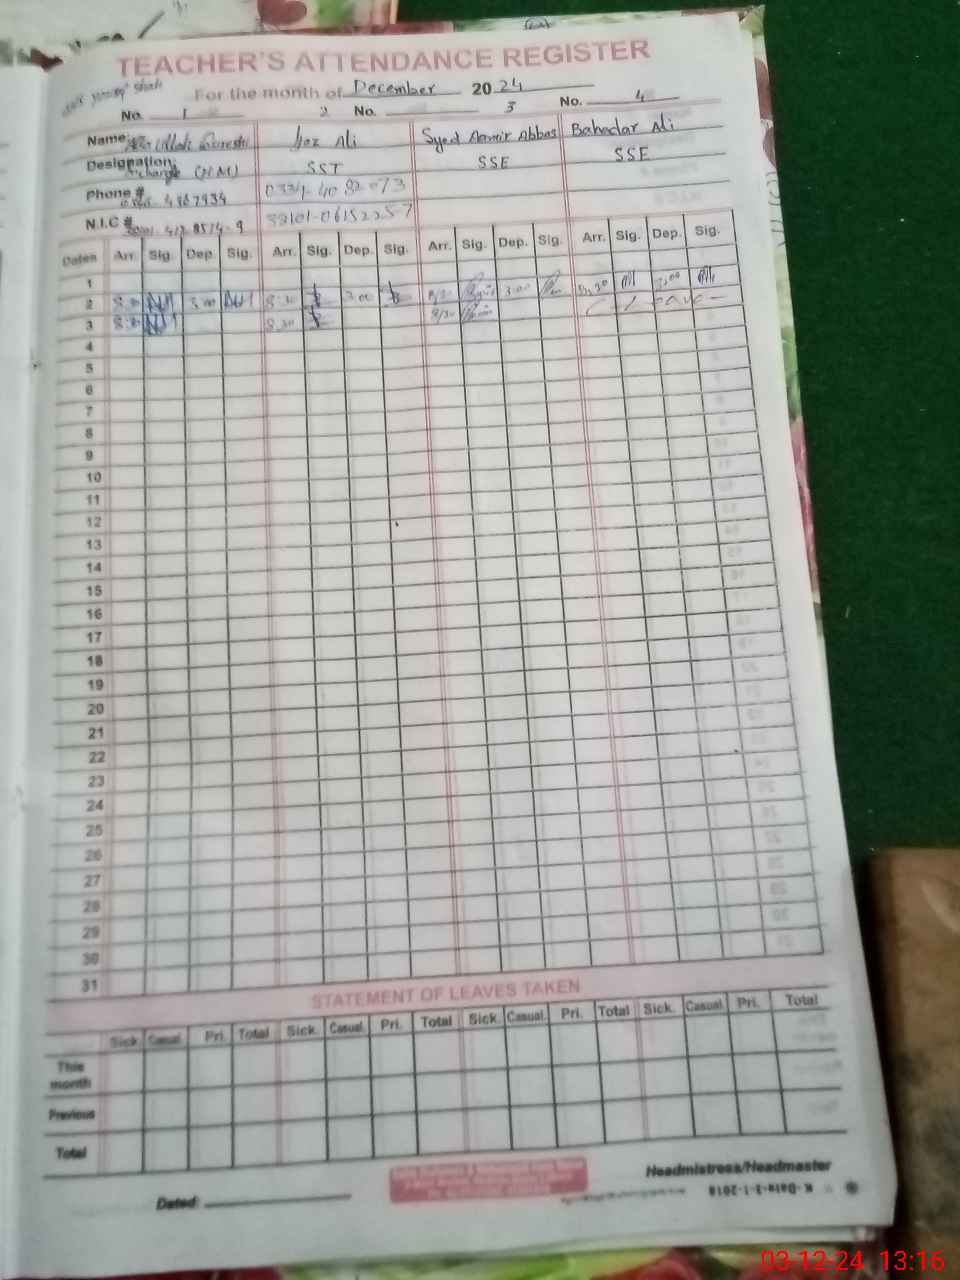 TEACHER'S ATTENDANCE REGISTER
For the month of December 2024
No. 1 2 No. 3 No. 4
Name: Ali Syed Aamir Abbas Bahadar Ali
Designation: Incharge (HM) SST SSE SSE
Phone # 0334-4082073
N.I.C #
Dates Arr. Sig. Dep. Sig. Arr. Sig. Dep. Sig. Arr. Sig. Dep. Sig. Arr. Sig. Dep. Sig.
1
2 8:30 3:00 8:30 3:00 8/30 3:00 3:00
3 8:30 8:30 8/30 C-Leave-
4
5
6
7
8
9
10
11
12
13
14
15
16
17
18
19
20
21
22
23
24
25
26
27
28
29
30
31
STATEMENT OF LEAVES TAKEN
Sick. Casual. Pri. Total Sick. Casual. Pri. Total Sick. Casual. Pri. Total Sick. Casual. Pri. Total
This month
Previous
Total
Headmistress/Headmaster
Dated:
03-12-24 13:16